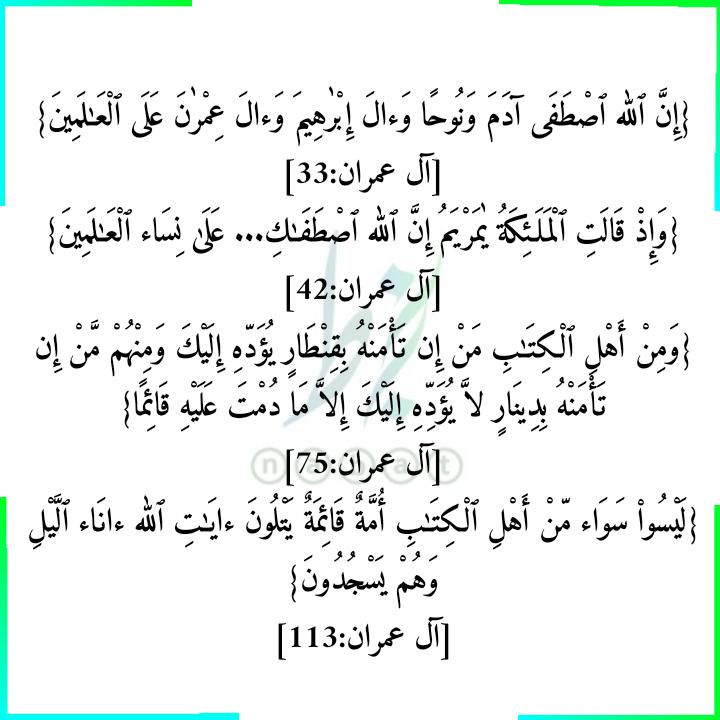 {إِنَّ ٱلله ٱصْطَفَى آدَمَ وَنُوحًا وَءالَ إِبْرٰهِيمَ وَءالَ عِمْرٰنَ عَلَى ٱلْعَـٰلَمِينَ}
[آل عمران:33]
{وَإِذْ قَالَتِ ٱلْمَلَـئِكَةُ يٰمَرْيَمُ إِنَّ ٱلله ٱصْطَفَـٰكِ... عَلَىٰ نِسَاء ٱلْعَـٰلَمِينَ}
[آل عمران:42]
{وَمِنْ أَهْلِ ٱلْكِتَـٰبِ مَنْ إِن تَأْمَنْهُ بِقِنْطَارٍ يُؤَدّهِ إِلَيْكَ وَمِنْهُمْ مَّنْ إِن
تَأْمَنْهُ بِدِينَارٍ لاَّ يُؤَدِّهِ إِلَيْكَ إِلاَّ مَا دُمْتَ عَلَيْهِ قَائِمًا}
[آل عمران:75]
{لَيْسُواْ سَوَاء مّنْ أَهْلِ ٱلْكِتَـٰبِ أُمَّةٌ قَائِمَةٌ يَتْلُونَ ءايَـٰتِ ٱلله ءانَاء ٱلَّيْلِ
وَهُمْ يَسْجُدُونَ}
[آل عمران:113]